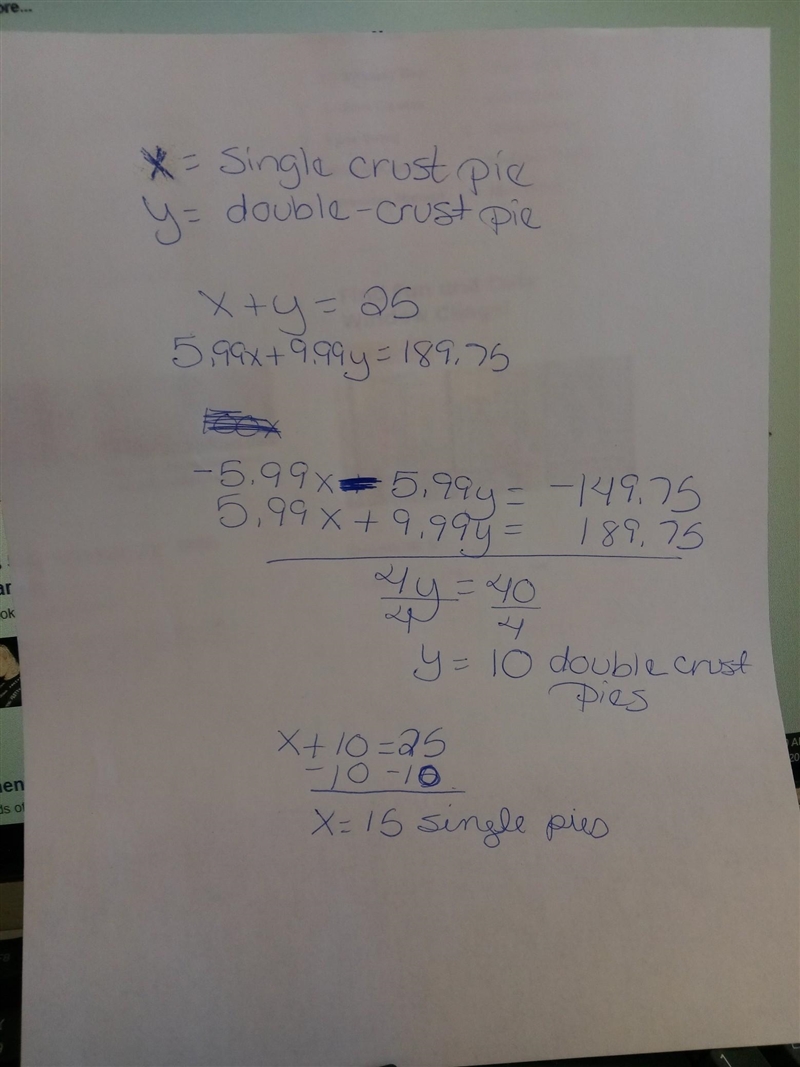 ore...
x = Single crust pie
y = double-crust pie
x + y = 25
5.99x + 9.99y = 189.75
-5.99x - 5.99y = -149.75
5.99x + 9.99y = 189.75
4y = 40
4 4
y = 10 double crust
pies
x + 10 = 25
-10 -10
x = 15 single pies
ar
ok
en
ds of
1